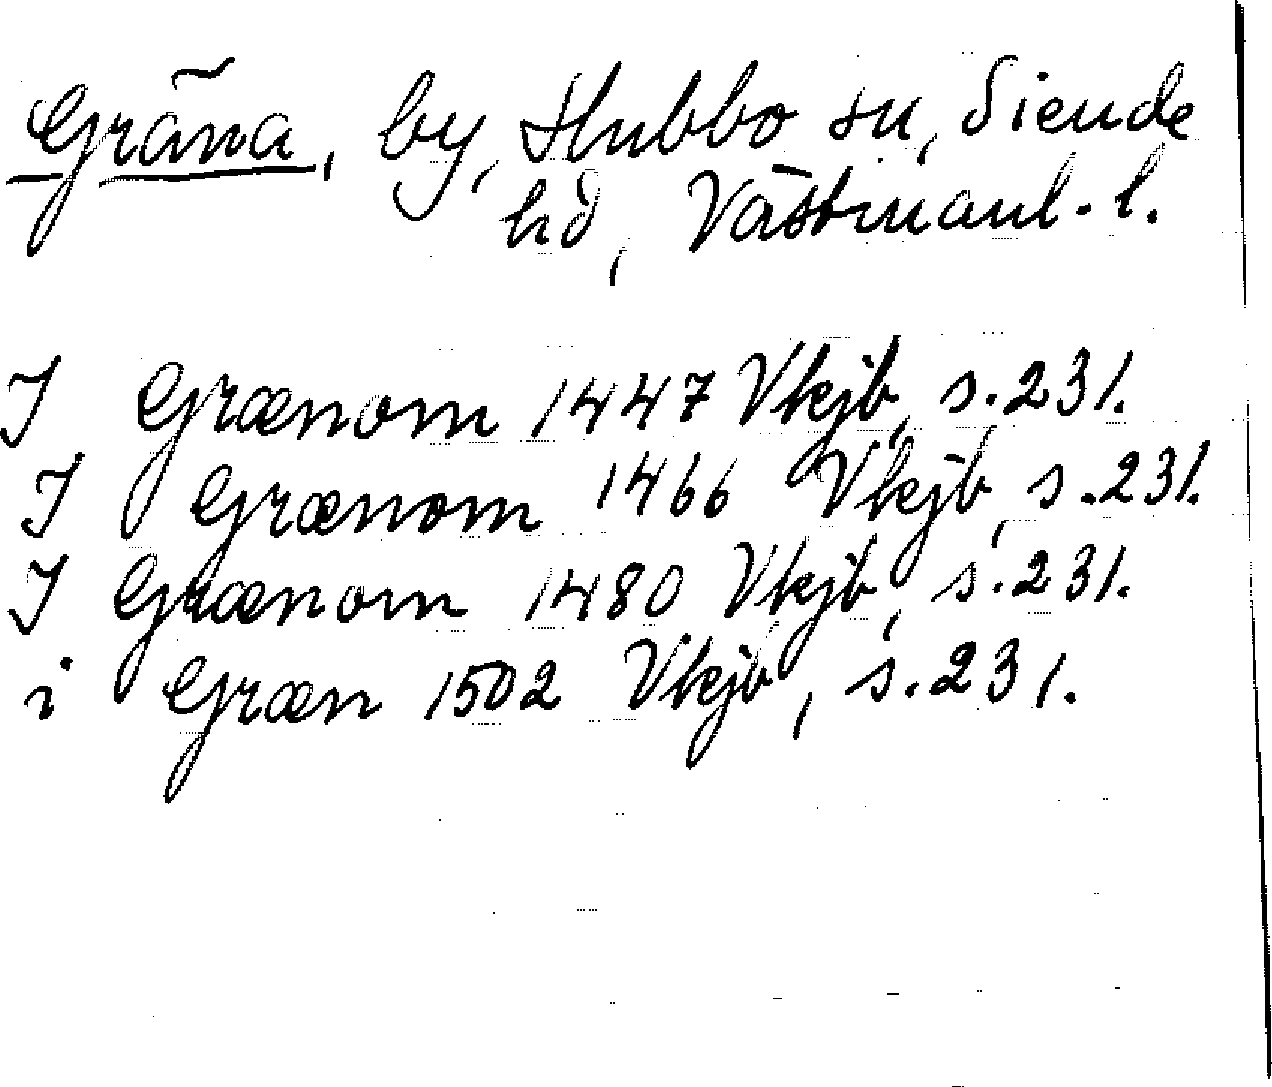 Gräna, by, Hubbo sn, Siende
hd, Västmanl. l.
I Grænom 1447 Vkjb, s. 231.
I Grænom 1466 Vkjb, s. 231.
I Grænom 1480 Vkjb, s. 231.
i Græn 1502 Vkjb, s. 231.